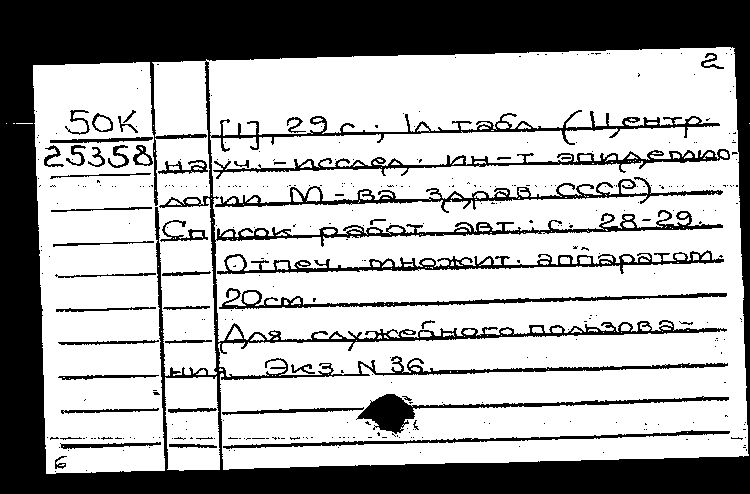 2
50К
25358
[1], 29 с.; 1л. табл. (Центр.
науч.-исслед. ин-т эпидемио-
логии М-ва здрав. СССР).
Список работ авт.: с. 28-29.
Отпеч. множит. аппаратом.
20см.
Для служебного пользова-
ния. Экз. N 36.
Б